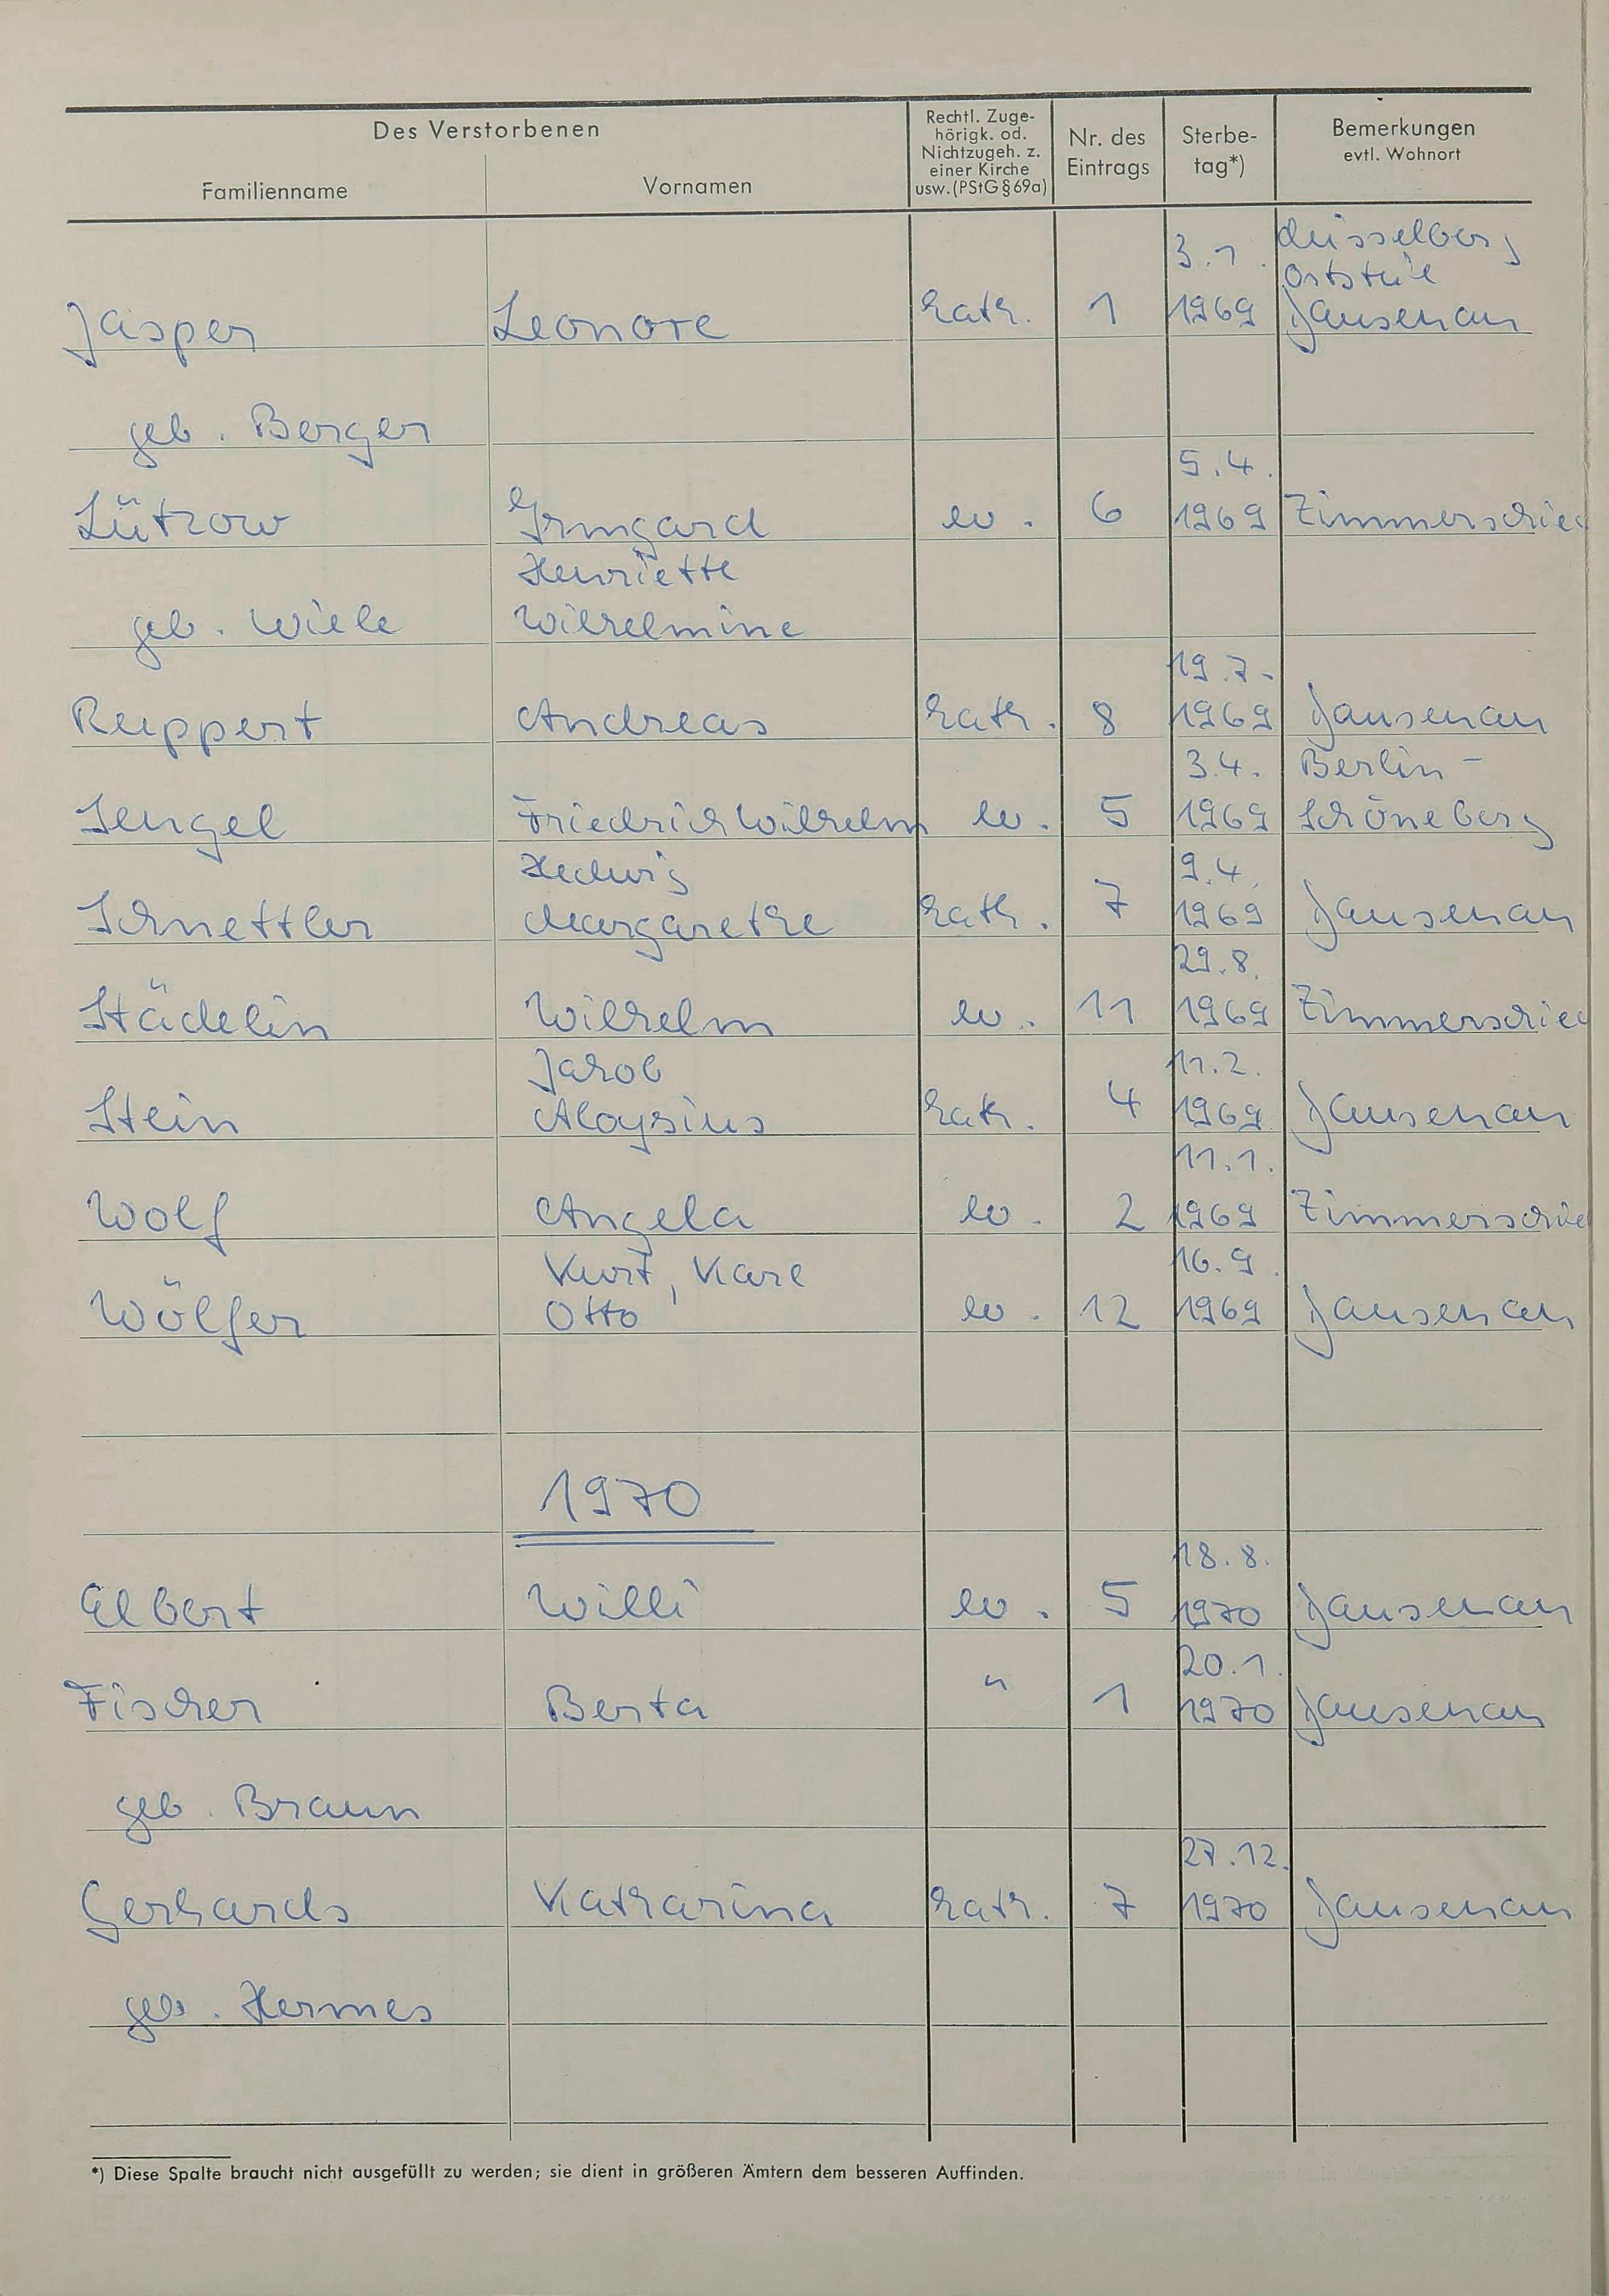 Des Verstorbenen
Familienname
Vornamen
Rechtl. Zuge-
hörigk. od.
Nichtzugeh. z.
einer Kirche
usw. (PStG § 69a)
Nr. des
Eintrags
Sterbe-
tag*)
Bemerkungen
evtl. Wohnort
3.1. Düsselberg
Ortsteil
Jasper Leonore kath. 1 1969 Dausenau
geb. Berger
5.4.
Lützow Irmgard ev. 6 1969 Zimmerschied
Henriette
geb. Wiele Wilhelmine
19.7.
Ruppert Andreas kath. 8 1969 Dausenau
3.4. Berlin-
Sengel Friedrich Wilhelm ev. 5 1969 Schöneberg
Hedwig 9.4.
Schnettler Margarethe kath. 7 1969 Dausenau
29.8.
Städelin Wilhelm ev. 11 1969 Zimmerschied
Jakob 11.2.
Stein Aloysius kath. 4 1969 Dausenau
11.1.
Wolf Angela ev. 2 1969 Zimmerschied
Kurt, Karl 16.9.
Wölfer Otto ev. 12 1969 Dausenau
1970
18.8.
Elbert Willi ev. 5 1970 Dausenau
20.1.
Fischer Berta " 1 1970 Dausenau
geb. Braun
27.12.
Gerhards Katharina kath. 7 1970 Dausenau
geb. Hermes
*) Diese Spalte braucht nicht ausgefüllt zu werden; sie dient in größeren Ämtern dem besseren Auffinden.